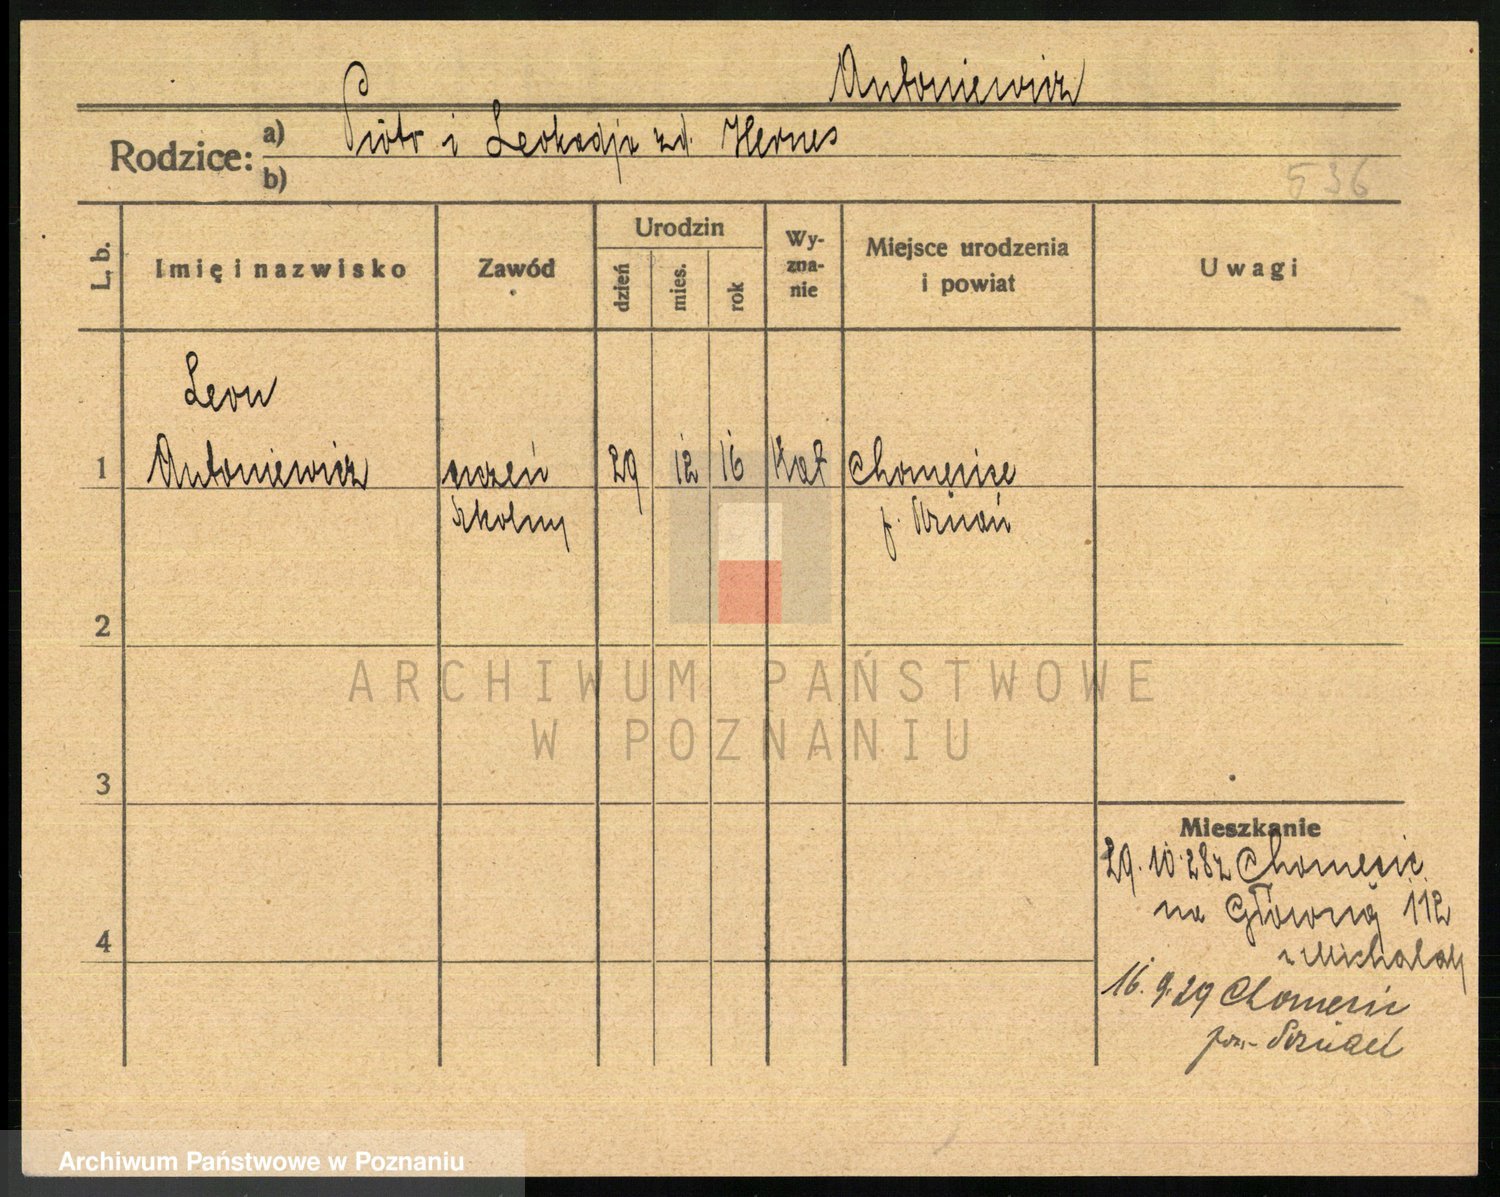 Antoniewicz
Rodzice: a) Piotr i Leokadja zd. Hernes
b)
536
L. b.
Imię i nazwisko
Zawód
Urodzin
dzień
mies.
rok
Wy-
zna-
nie
Miejsce urodzenia
i powiat
Uwagi
Leon
1 Antoniewicz uczeń 29 12 16 kat Chomencice
szkolny p. Poznań
2
ARCHIWUM PAŃSTWOWE
W POZNANIU
3
Mieszkanie
29.10.28 z Chomęcic
na Główną 112
4
16.9.29 Chomęcic
pow. Poznań
Archiwum Państwowe w Poznaniu